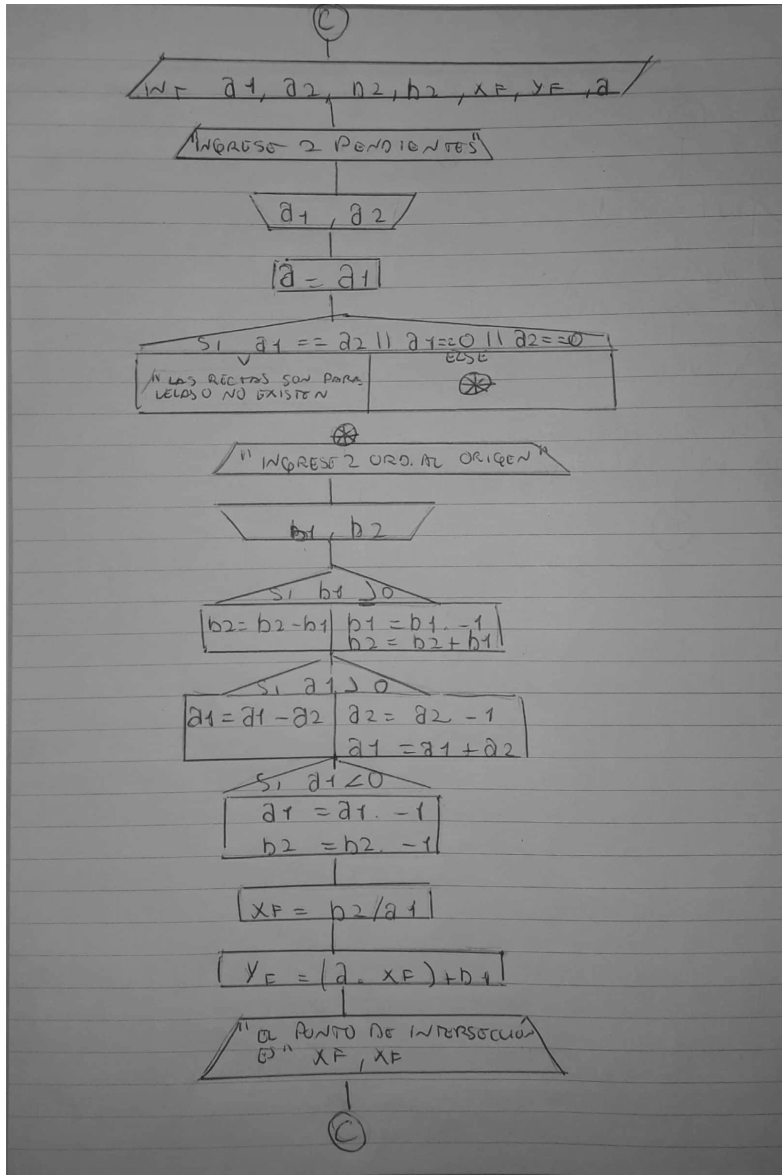 C
INT a1, a2, b2, b2, XF, YF, a
"INGRESE 2 PENDIENTES"
a1, a2
a = a1
Si a1 == a2 || a1==0 || a2==0
V ELSE
"LAS RECTAS SON PARA
LELAS O NO EXISTEN
"INGRESE 2 ORD. AL ORIGEN"
b1, b2
Si b1 ≥0
b2= b2-b1 b1 = b1. -1
b2 = b2+b1
Si a1 > 0
a1=a1-a2 a2= a2 -1
a1 =a1+a2
Si a1<0
a1 = a1. -1
b2 = b2. -1
XF = b2/a1
YF =(a. XF)+b1
"El PUNTO DE INTERSECCION
ES" XF, XF
C